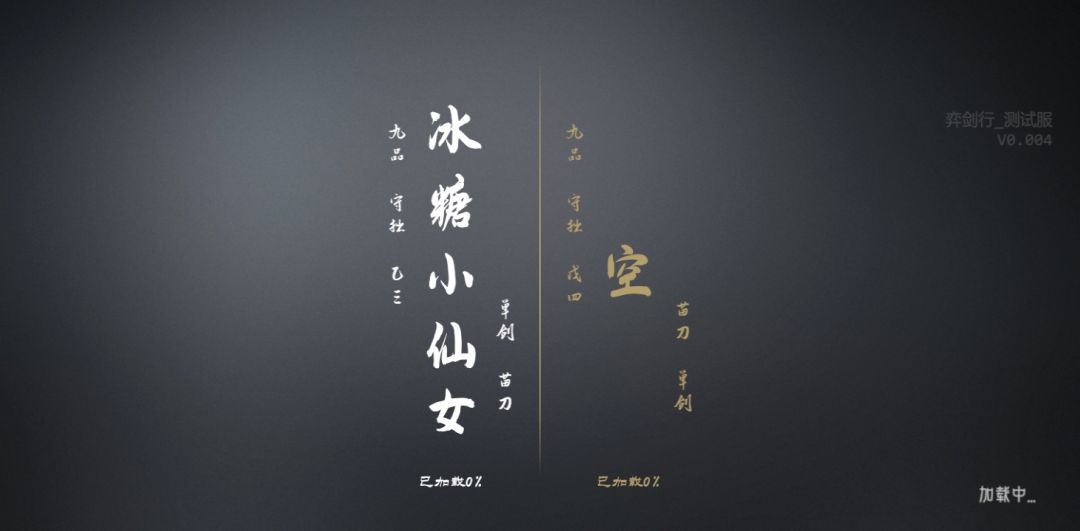 九品 守拙 乙三
冰糖小仙女
单剑 苗刀
已加载0%
九品 守拙 戊四
空
苗刀 单剑
已加载0%
弈剑行_测试服
V0.004
加载中...